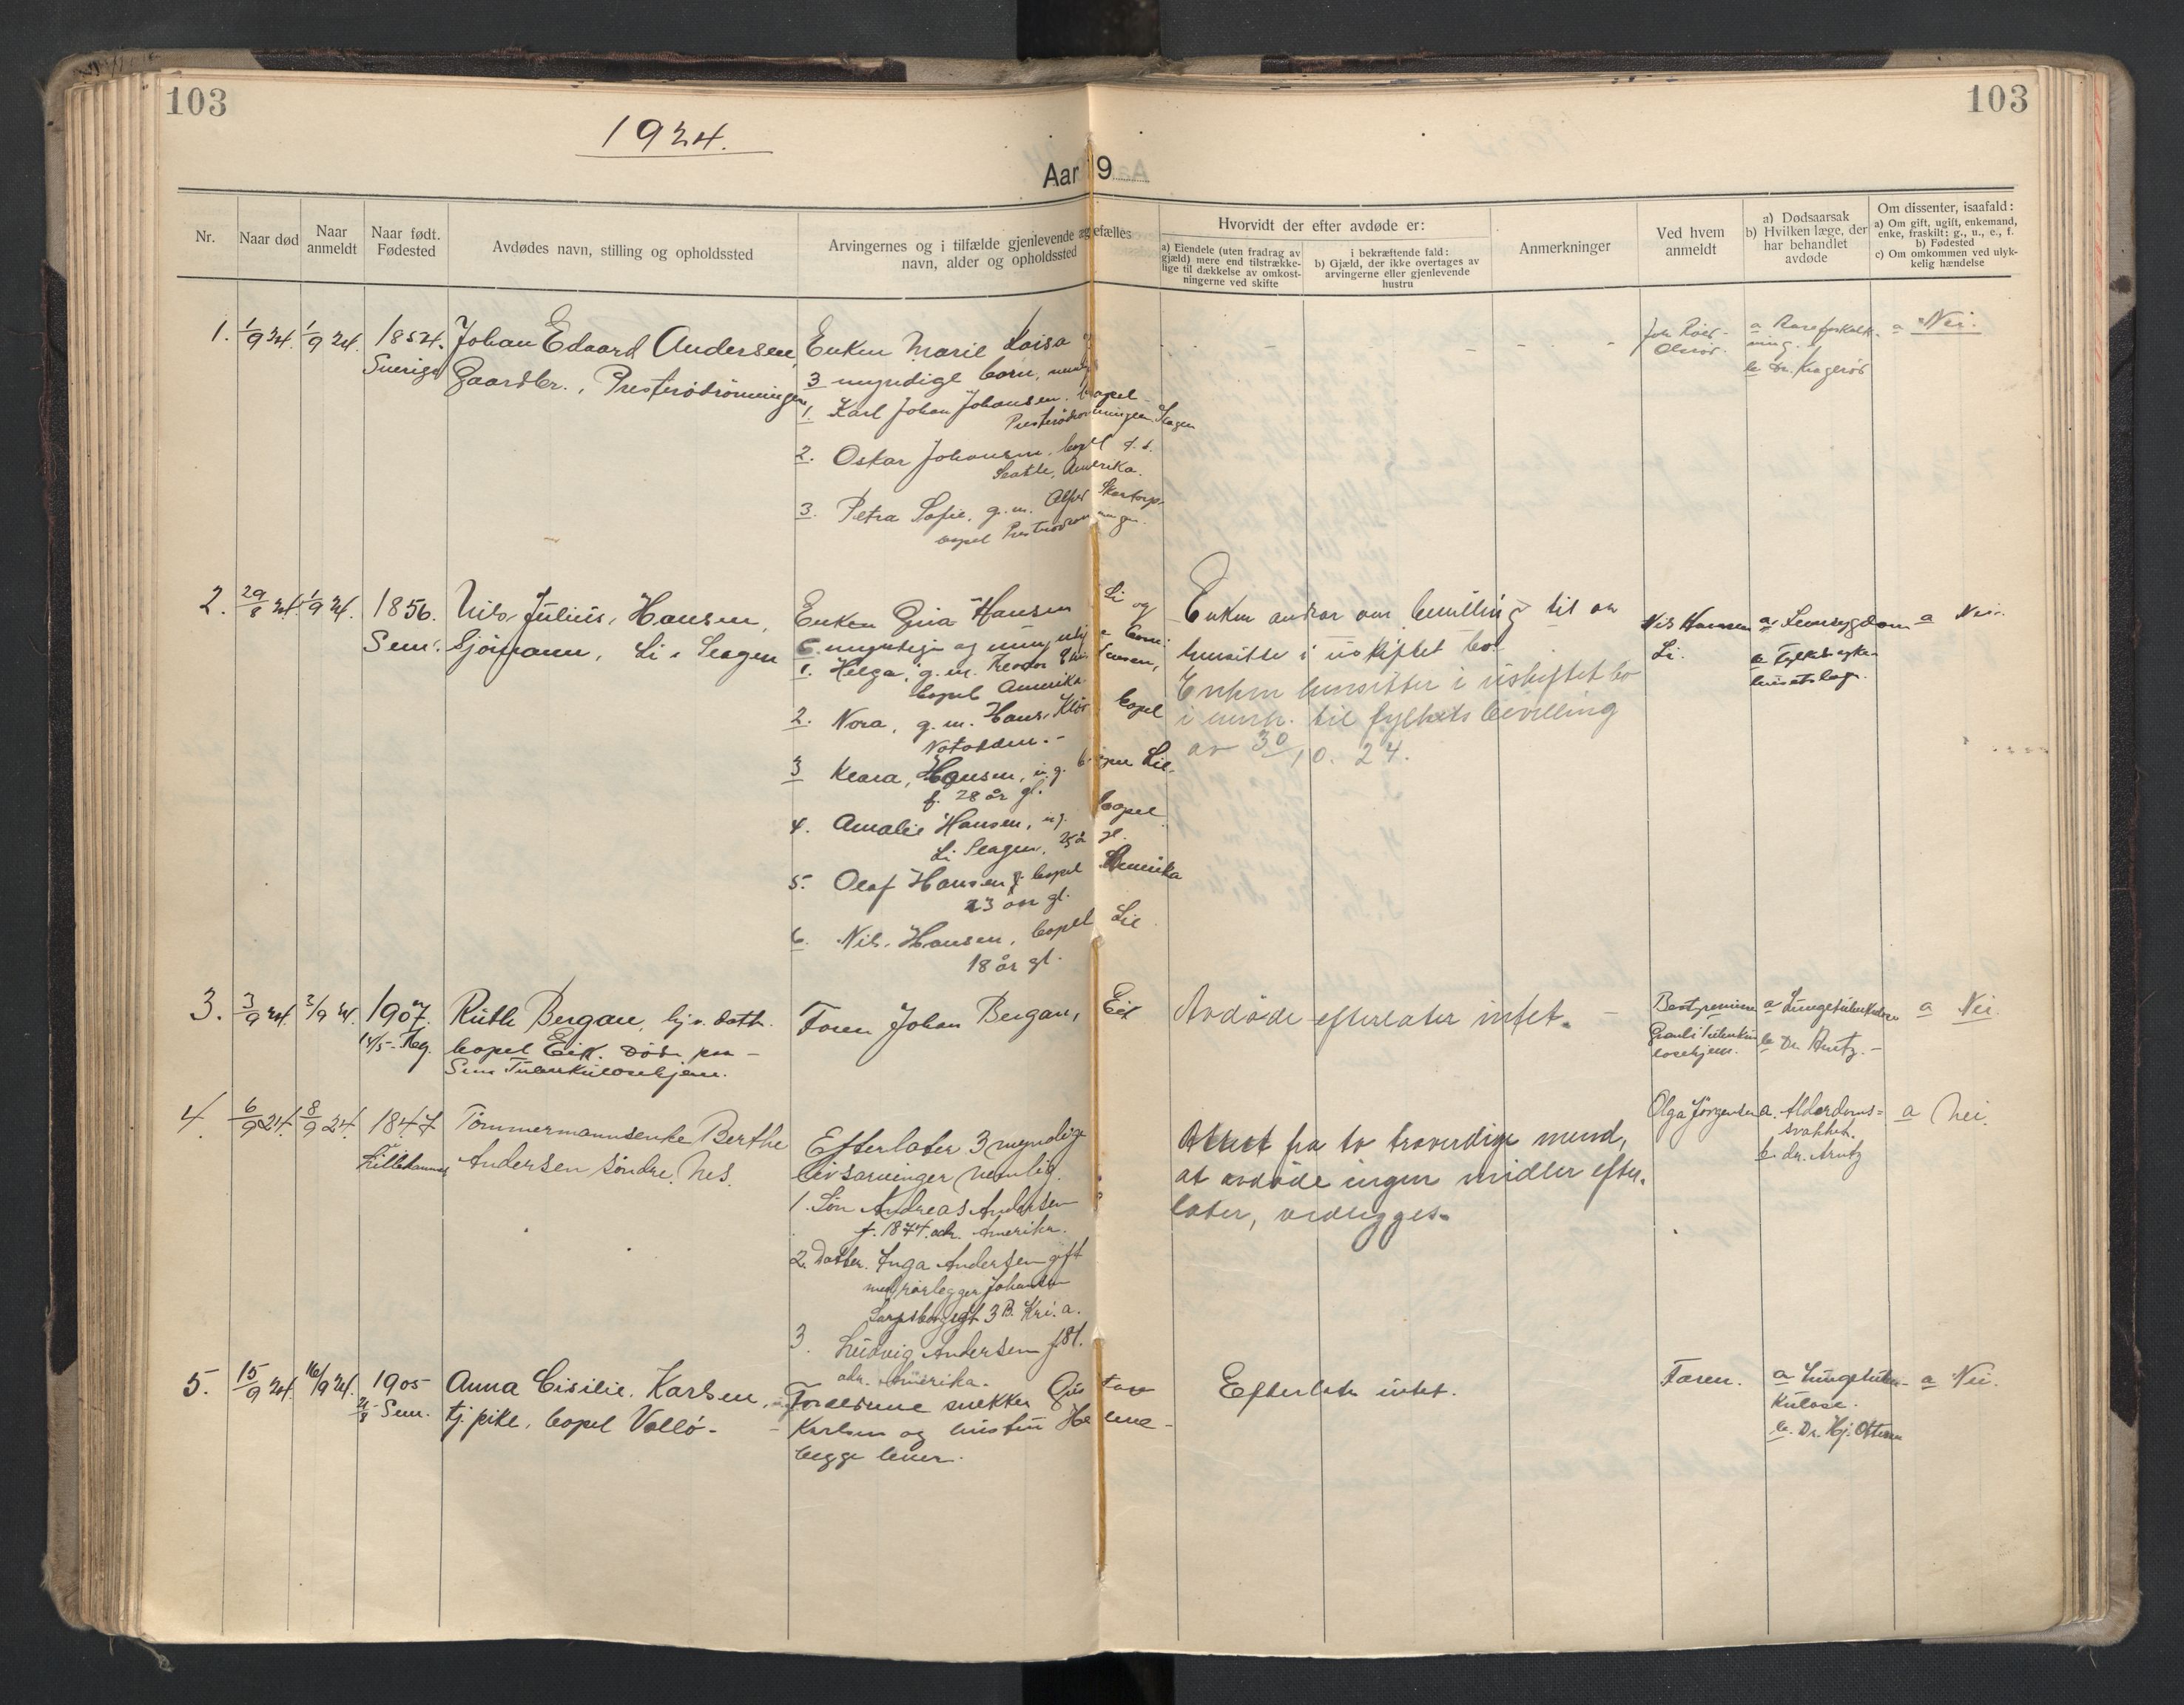 103
103
1924.
Aar 19
Nr.
Naar død
Naar anmeldt
Naar født. Fødested
Avdødes navn, stilling og opholdssted
Arvingernes og i tilfælde gjenlevende ægtefælles navn, alder og opholdssted
Hvorvidt der efter avdøde er:
a) Eiendele (uten fradrag av gjæld) mere end tilstrækkelige til dækkelse av omkostningerne ved skifte
i bekræftende fald:
b) Gjæld, der ikke overtages av arvingerne eller gjenlevende hustru
Anmerkninger
Ved hvem anmeldt
a) Dødsaarsak
b) Hvilken læge, der har behandlet avdøde
Om dissenter, isaafald:
a) Om gift, ugift, enkemand, enke, fraskilt: g., u., e., f.
b) Fødested
c) Om omkommen ved ulykkelig hændelse
1. 1/9 24. 1/9 24. 1854. Johan Edvard Andersen,
Sverige Gaardbr., Presterødrønningen
Enken Marie Loisa og
3 myndige born,
1. Karl Johan Johansen, bopel
Presterødrønningen Slagen
2. Oskar Johansen, bopel
Seattle, Amerika.
3. Petra Sofie, g. m. Skartorp
bopel
- - - - -
Olsrød.
a Aareforkalk-
ning.
b Dr. Kragerød
a Nei.
2. 29/8 24. 1/9 24. 1856. Nils Julius Hansen,
Sem. Sjømann, Li i Slagen
Enken Gina Hansen Li og
6 myndige og
1. Helga, g. m. Teodor
bopel Amerika
2. Nora, g. m. Hans bopel
Notodden.
3 Klara Hansen, ug. bopel Lie.
f. 28 år gl.
4. Amalie Hansen, ug. bopel
Li Slagen, 25 år gl.
5. Olaf Hansen bopel Amerika
23 år gl.
6. Nils Hansen, bopel Lie
18 år gl.
Enken andrar om bevilling til at
hensitte i uskiftet bo.
Enken hensitter i uskiftet bo
i henh. til fylkets bevilling
av 30/10. 24.
Nils Hansen
Li.
a Lennsygdom
b Fylkessyke-
husets læge.
a Nei.
3. 3/9 24. 3/9 24. 1907. Ruth Bergan, hj.v. datt.
14/5 bopel Eik. Død paa
Sem Tuberkulosehjem.
Faren Johan Bergan, Eik
Avdøde efterlater intet.
Bestyrerinnen
Tuberku-
losehjem.
a Lungetuberkulose
b Dr. Arntz.
a Nei.
4. 6/9 24. 8/9 24. 1847 Tømmermannsenke Berthe
Lillehammer Andersen søndre Nes.
Efterlater 3 myndige
livsarvinger nemlig.
1. Søn Andreas Andersen
f. 1874. adr. Amerika.
2. Datter. Inga Andersen gift
med rørlegger Johansen
Sarpsborggt 3 B. Kr.a.
3. Ludvig Andersen f 81.
adr. Amerika.
Attest fra to troverdige mend,
at avdøde ingen midler efter-
later, vedlegges.
Olga Jørgensen
a. Alderdoms-
svakhet.
b. dr. Arntz
a Nei.
5. 15/9 24. 16/9 24. 1905 Anna Cisilie Karlsen,
21/8 Sem. tj. pike, bopel Vallø.
Foreldrene snekker Gustav
Karlsen og hustru Helene
begge lever.
Efterlater intet.
Faren.
a Lungetuber-
kulose.
b. Dr. Hj. Ottersen
a Nei.